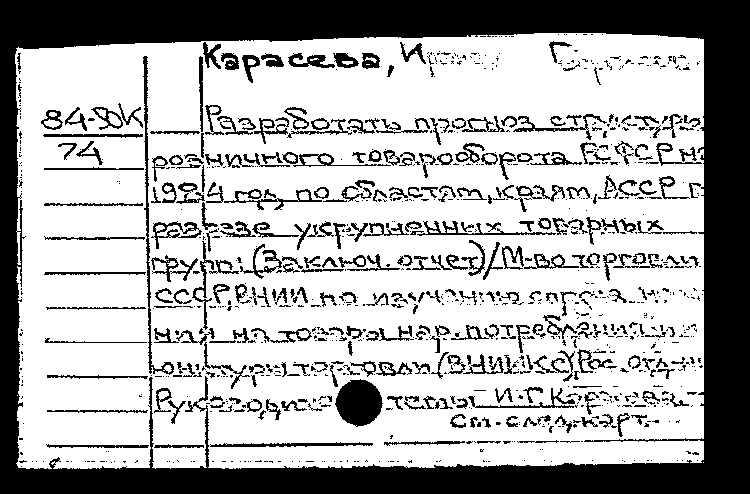 Карасева,
84-50К Разработать прогноз структуры
74 розничного товарооборота РСФСР на
1984 год, по областям, краям, АССР в
разрезе укрупненных товарных
групп: (Заключ. отчет)/М-во торговли
СССР, ВНИИ по изучению спроса
ния на товары нар. потребления и
конъюнктуры торговли (ВНИИКС), Рос. отд-
Руководитель темы И.Г. Карасева.
См. след. карт.